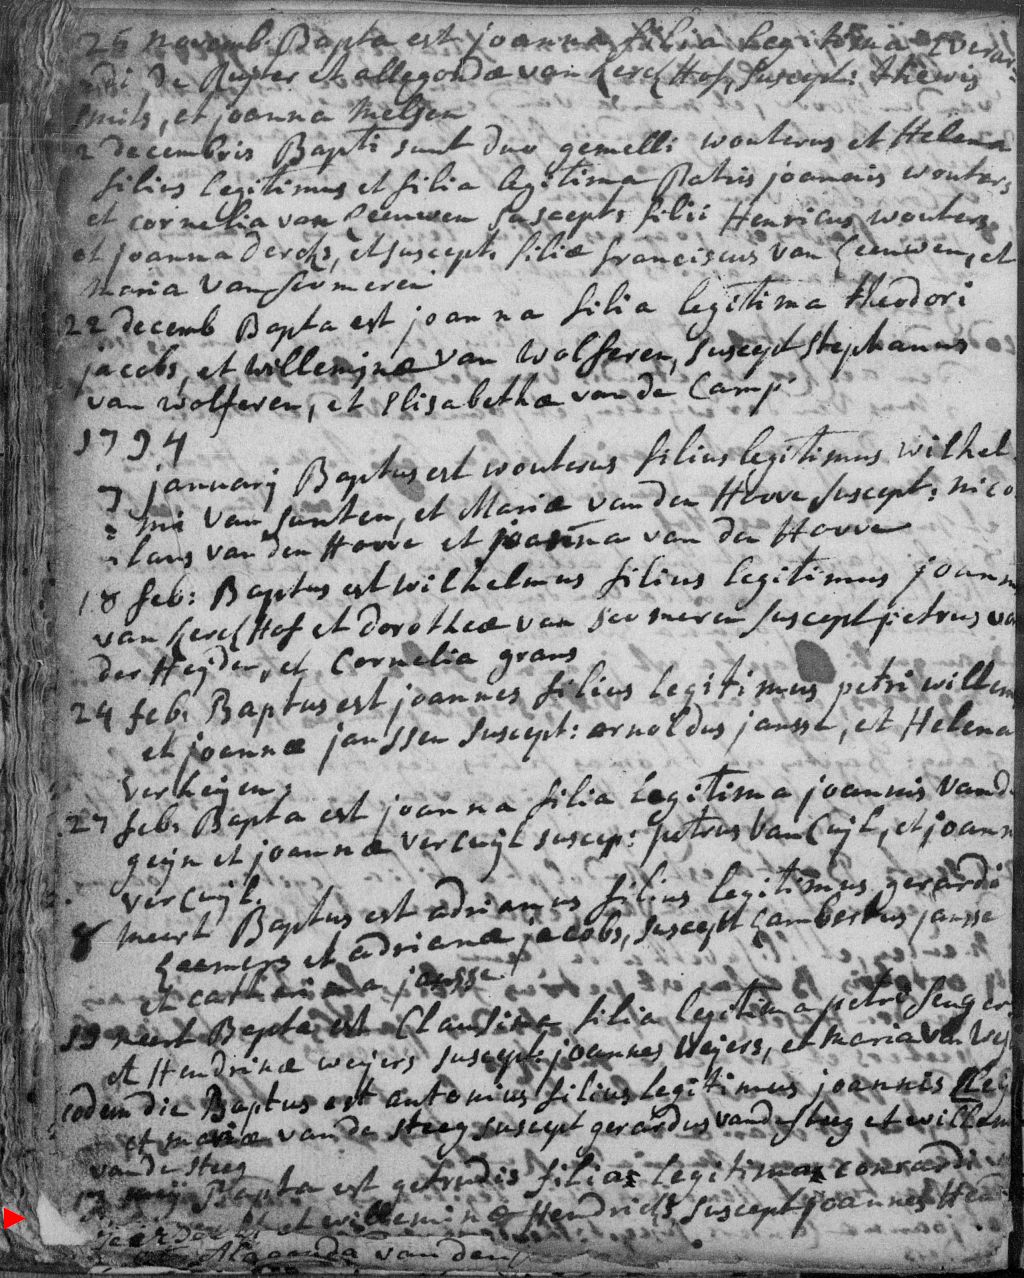 25 novemb: Bapta est joanna filia legitima Everar-
di de Ruijter et allegondæ van Kerckhof, suscept: thewis
smits, et joanna melsen
2 decembris Bapti sunt duo gemelli wouterus et Helena
filius legitimus et filia legitima Patris joannis wouters
et cornelia van Leeuwen suscept: filii Henricus wouters
et joanna derckx, et suscept: filiæ franciscus van Leeuwen, et
maria van someren
22 decemb Bapta est joanna filia legitima theodori
jacobs, et willemynæ van wolferen, suscept stephanus
van wolferen, et Elisabethæ van de Camp
1794
7 januarij Baptus est wouterus filius legitimus wilhel
mi van santen, et Mariæ van den Hovve suscept: nico
laus van den Hovve et joanna van den Hovve
18 feb: Baptus est wilhelmus filius legitimus joann
van Kerckhof et dorotheæ van someren suscept petrus va
der Heijden, et Cornelia grans
24 feb: Baptus est joannes filius legitimus petri willem
et joannæ janssen suscept: arnoldus jansse, et Helena
verheijen
27 feb: Bapta est joanna filia legitima joannis vand
geijn et joannæ vercuijl suscep: petrus van Cuijl, et joann
vercuijl.
8 meert Baptus est adrianus filius legitimus gerardi
Leemers et adrianæ jacobs, suscept Lambertus jansse
et catharina jansse
19 meert Bapta est Clausina filia legitima petri senger
et Hendrinæ weijers suscept: joannes weijers, et maria van
eodem die Baptus est antonius filius legitimus joannis
et mariæ van de steeg suscept gerardus vande steeg et willem
van de steeg
13 meij Bapta est getrudis filia legitima conradi
et willeminæ Hendricks suscept joannes
et Aldegonda van den